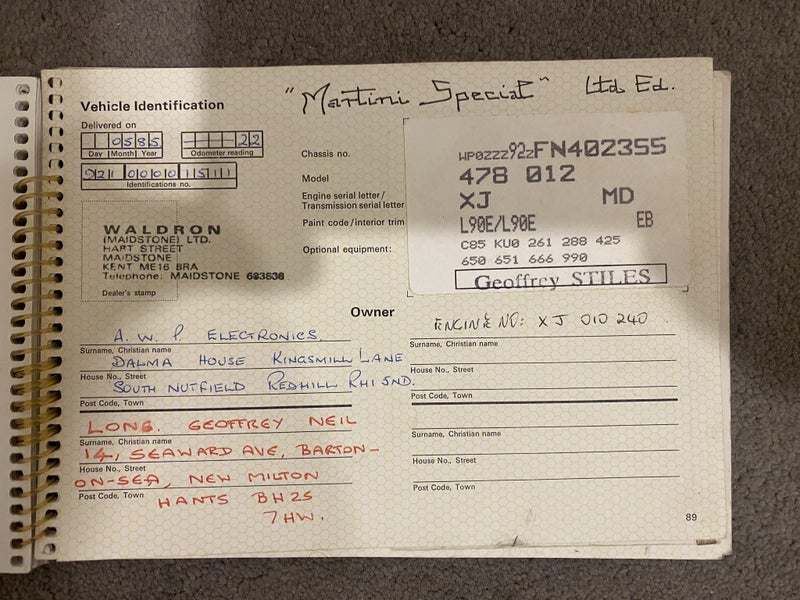 "Martini Special" Ltd Ed.
Vehicle Identification
Delivered on
0585 22
Day Month Year Odometer reading
Identifications no.
WALDRON
(MAIDSTONE) LTD.
HART STREET
MAIDSTONE
KENT ME16 8RA
Telephone: MAIDSTONE
Dealer's stamp
Chassis no.
Model
Engine serial letter/
Transmission serial letter
Paint code/interior trim
Optional equipment:
WP0ZZZ92ZFN402355
478 012
XJ MD
L90E/L90E EB
C85 KU0 261 288 425
650 651 666 990
Geoffrey STILES
Owner
A. W. P. ELECTRONICS.
Surname, Christian name
DALMA HOUSE KINGSMILL LANE
House No., Street
SOUTH NUTFIELD REDHILL RH1 5ND.
Post Code, Town
LONG. GEOFFREY NEIL
Surname, Christian name
14, SEAWARD AVE, BARTON-
House No., Street
ON-SEA, NEW MILTON
Post Code, Town
HANTS BH25
7HW.
ENGINE NO: XJ 010 240
Surname, Christian name
House No., Street
Post Code, Town
Surname, Christian name
House No., Street
Post Code, Town
89